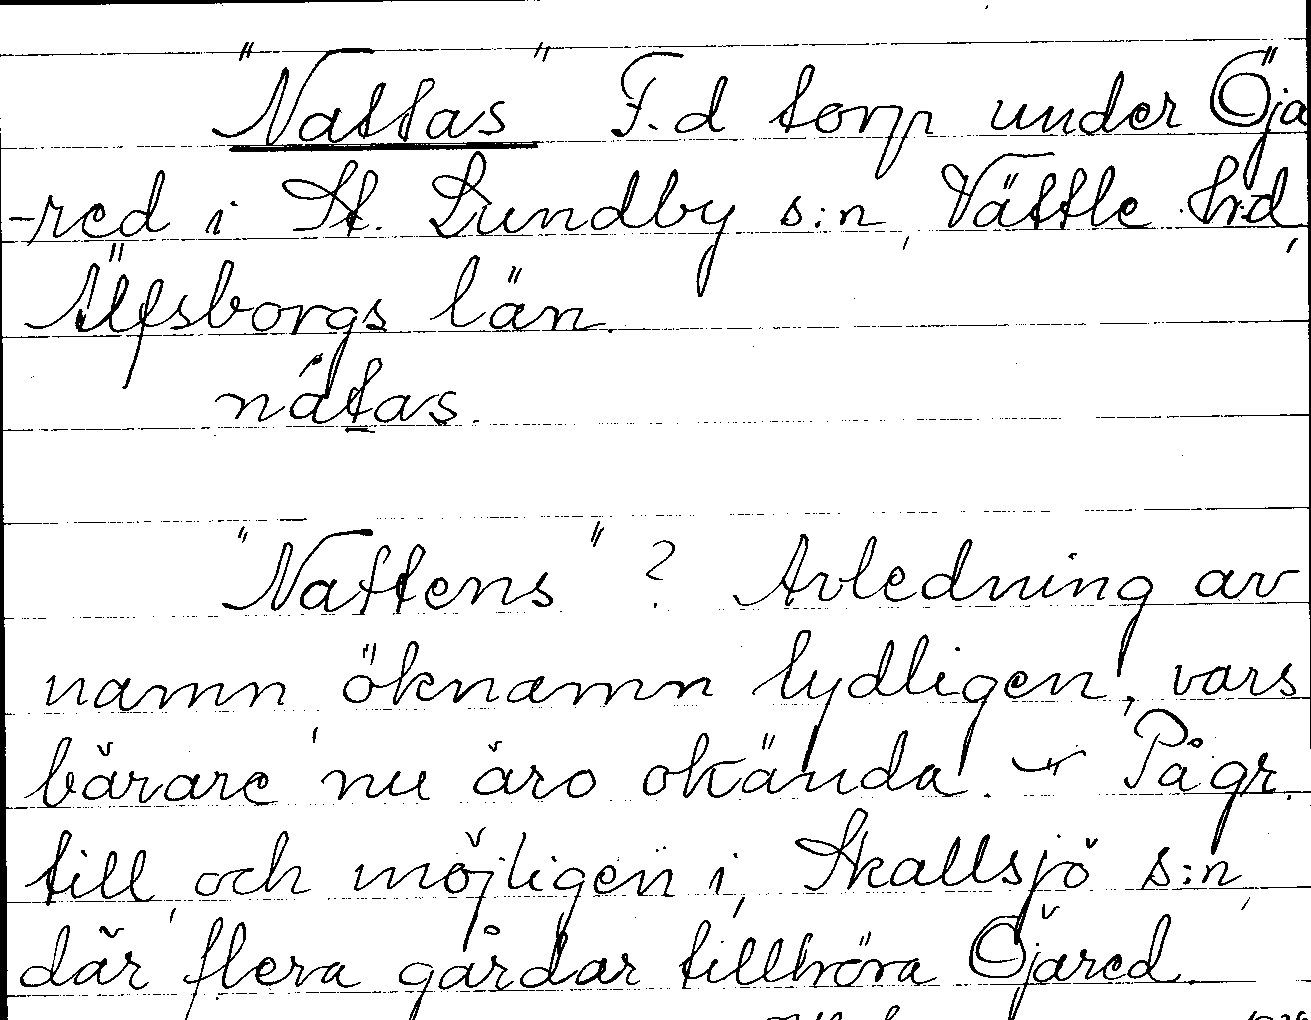 "Nattas" F.d torp under Öja
-red i St. Lundby s:n, Vättle hd,
Älfsborgs län.
nátas.
"Nattens" ? Avledning av
namn, öknamn tydligen, vars
bärare nu äro okända. - På gr.
till, och möjligen i, Skallsjö s:n,
där flera gårdar tillhöra Öjared.